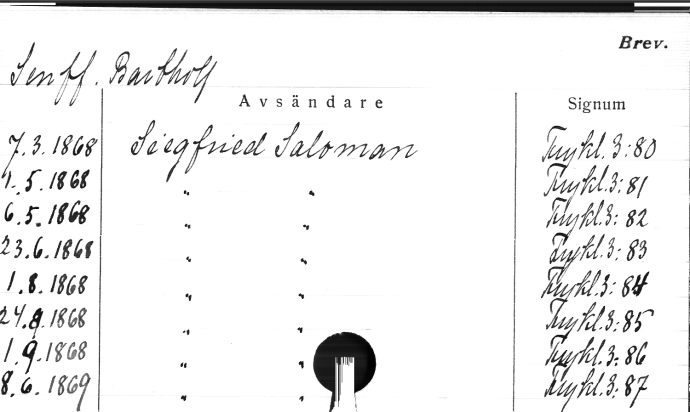 Brev.
Senff. Barthold
Avsändare Signum
7.3.1868 Siegfried Saloman Trykl.3:80
1.5.1868 " " Trykl.3:81
6.5.1868 " " Trykl.3:82
23.6.1868 " " Trykl.3:83
1.8.1868 " " Trykl.3:84
24.8.1868 " " Trykl.3:85
1.9.1868 " " Trykl.3:86
8.6.1869 " " Trykl.3:87